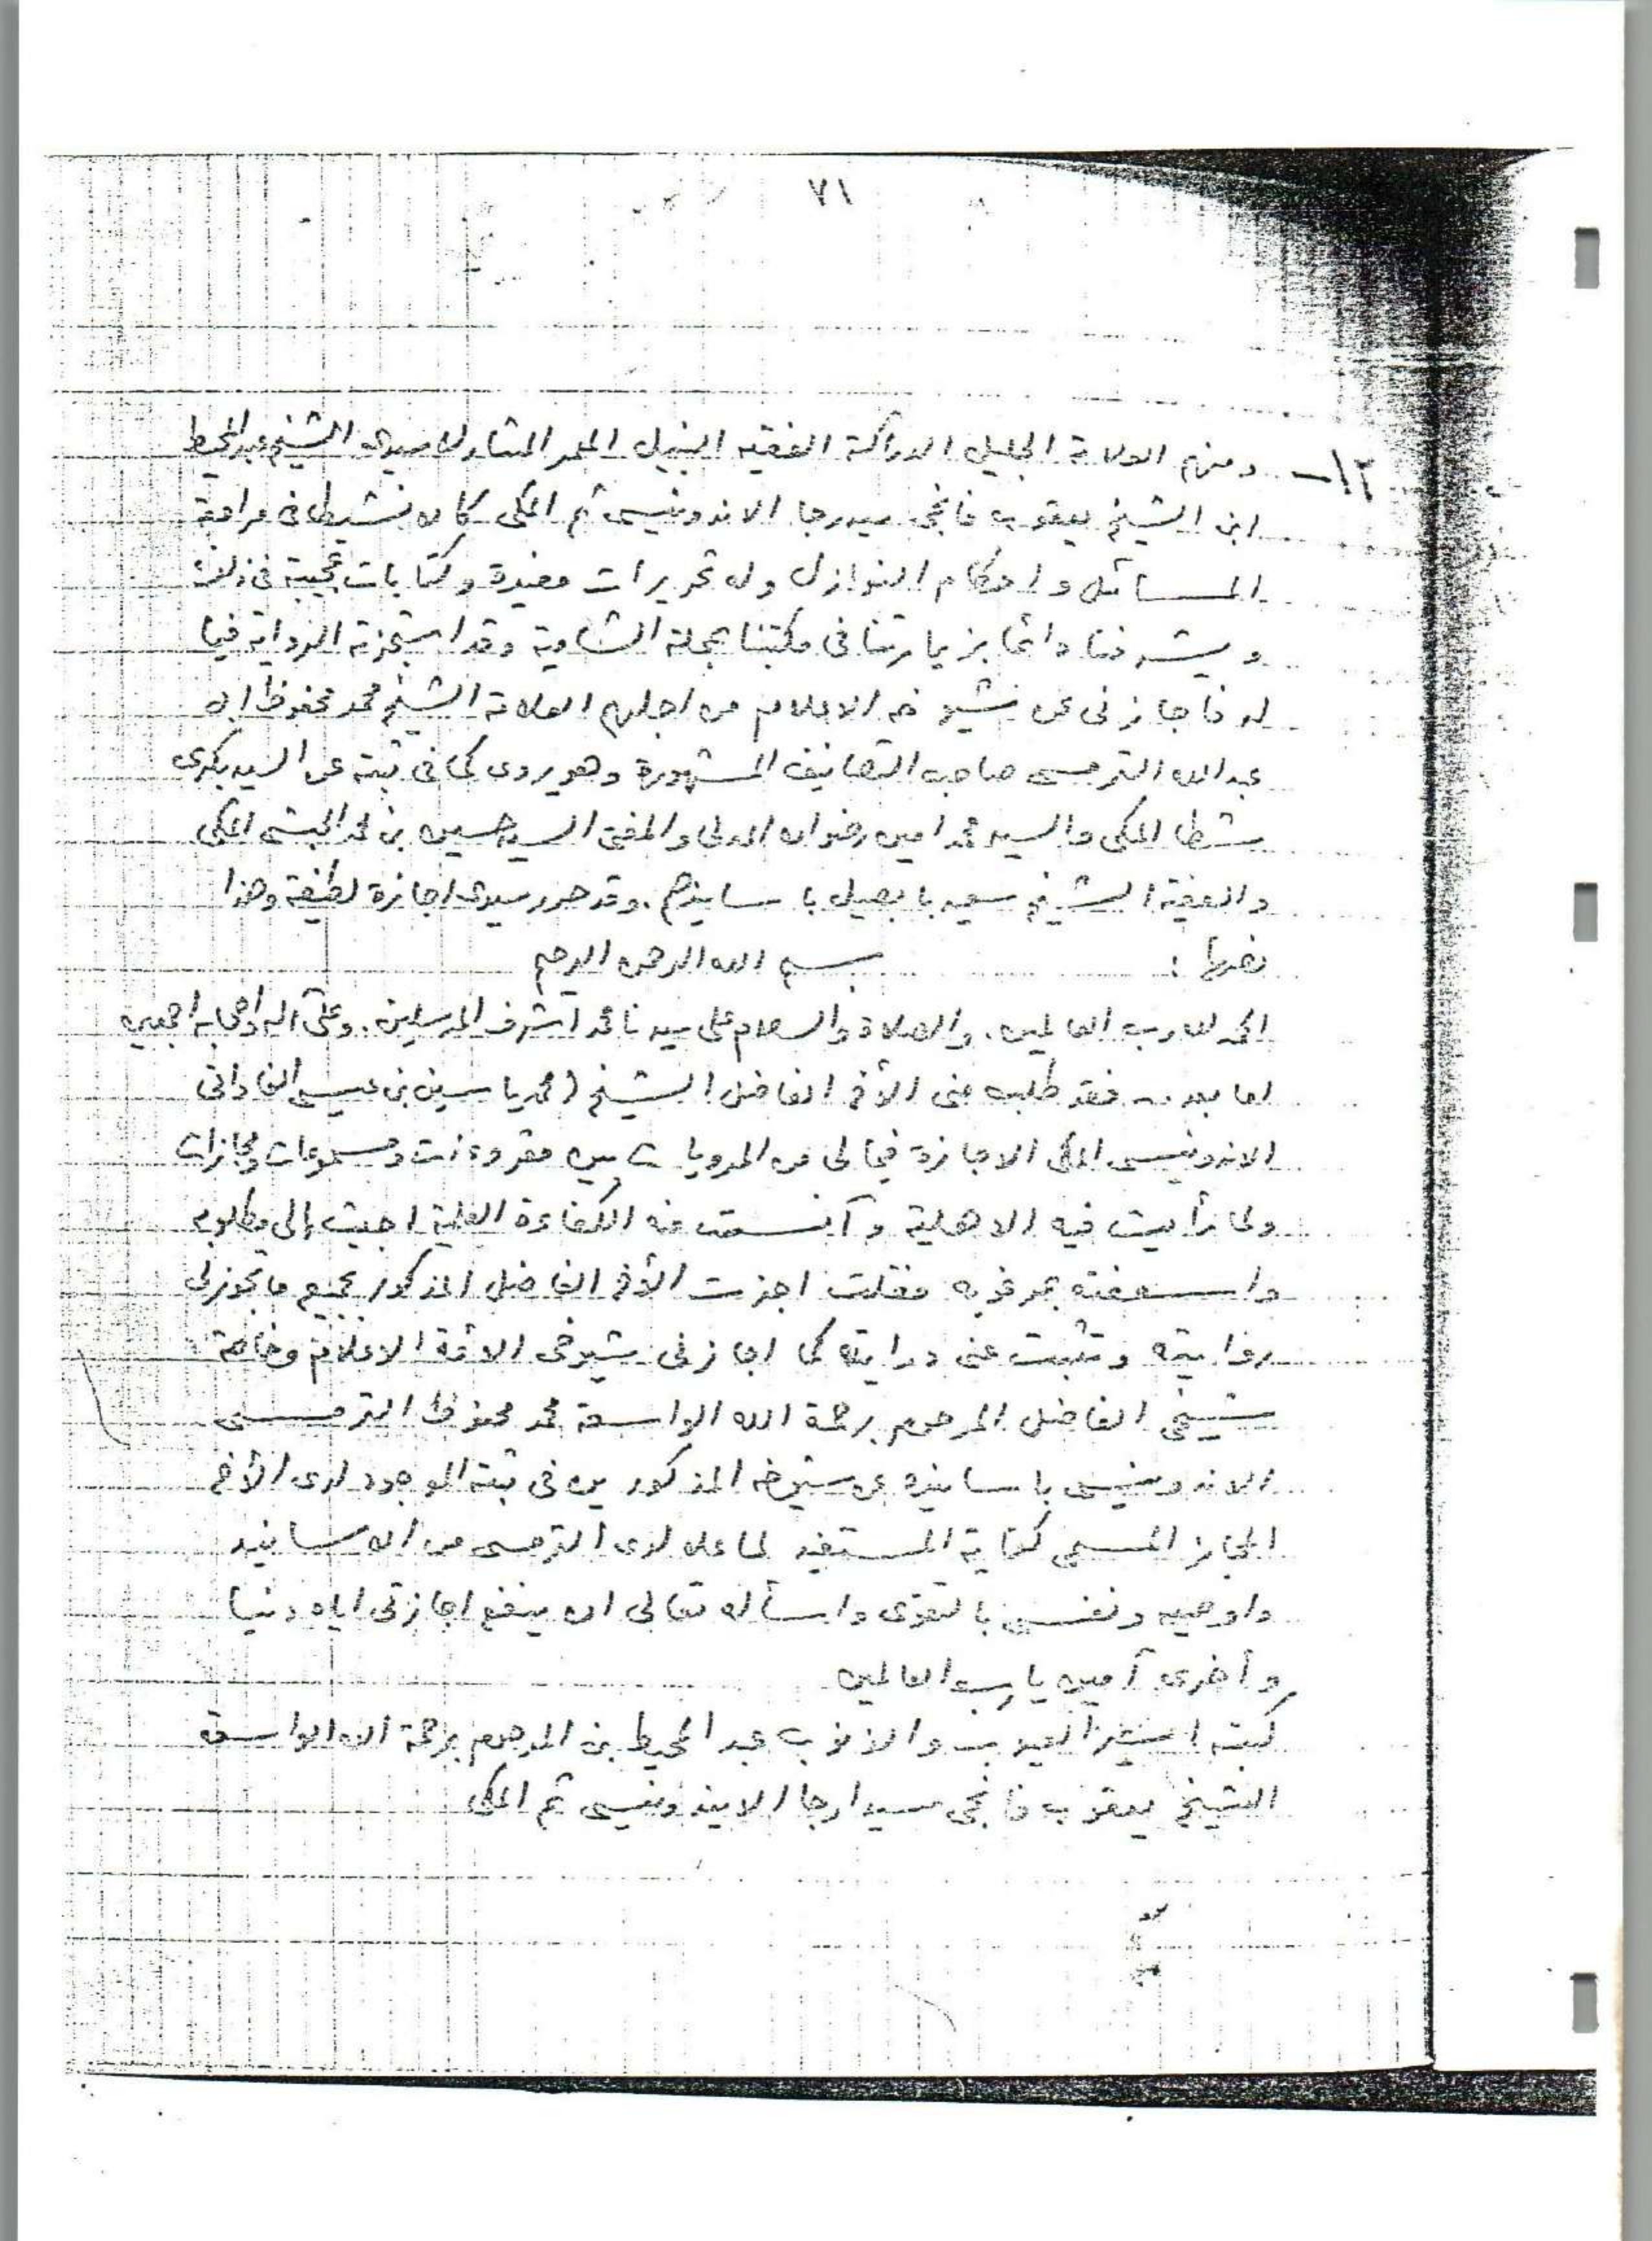 ٧١
١٢- ومنهم العلامة الجليل الدراكة الفقيه النبيل المعمر المشارك سيدى الشيخ عبد المحيط
ابن الشيخ يعقوب فانجى سيدرجا الاندونيسى ثم المكى كان نشيطا فى مراجعة
المسائل واحكام النوازل وله تحريرات مفيدة وكتابات عجيبة فى ذلك
ويشرفنا دائما بزيارتنا فى مكتبنا بمحلة الشامية وقد استجزته الرواية فيما
له فاجازنى عن شيوخه الاعلام من اجلهم العلامة الشيخ محمد محفوظ ابن
عبد الله الترمسى صاحب التصانيف المشهورة وهو يروى كما فى ثبته عن السيد بكرى
شطا المكى والسيد محمد امين رضوان المدنى والمفتى السيد حسين بن محمد الحبشى المكى
والفقيه الشيخ سعيد بابصيل باسانيدهم. وقد حرر سيدى اجازة لطيفة وهذا
نصها : بسم الله الرحمن الرحيم
الحمد لله رب العالمين. والصلاة والسلام على سيدنا محمد أشرف المرسلين. وعلى آله واصحابه اجمعين
اما بعد .. فقد طلب منى الأخ الفاضل الشيخ (محمد ياسين بن عيسى الفادانى
الاندونيسى المكى الاجازة فيما لى من المرويات من مقروءات ومسموعات ومجازات
ولما رأيت فيه الاهلية وآنست منه الكفاءة العلمية اجبت إلى مطلوبه
واسعفته بمرغوبه فقلت اجزت الأخ الفاضل المذكور بجميع ما تجوز لى
روايته وتثبت عنى درايته كما اجازنى شيوخى الائمة الاعلام وخاصة
شيخى الفاضل المرحوم برحمة الله الواسعة محمد محفوظ الترمسى
الاندونيسى باسانيده عن شيوخه المذكورين فى ثبته الموجود لدى الأخ
المجاز المسمى كفاية المستفيد لما علا لدى الترمسى من الاسانيد
واوصيه ونفسى بالتقوى واسأله تعالى ان ينفع اجازتى اياه دنيا
وأخرى آمين يا رب العالمين
كتبه اسير العيوب والذنوب عبد المحيط بن المرحوم برحمة الله الواسعة
الشيخ يعقوب فانجى سيدارجا الاندونيسى ثم المكى